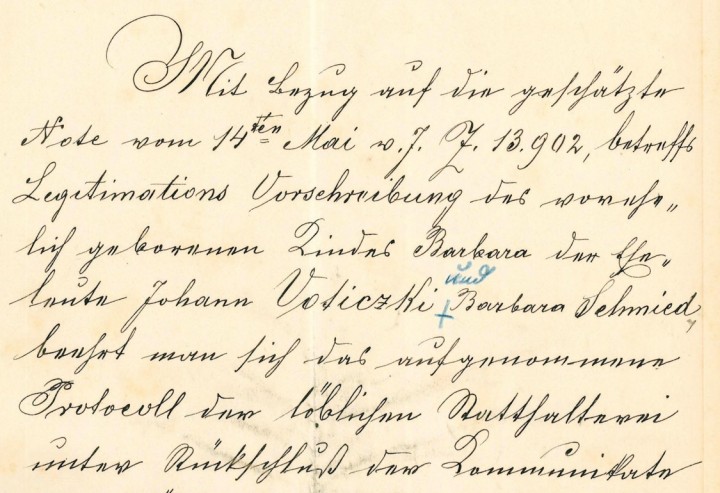 Mit Bezug auf die geschätzte
Note vom 14ten Mai v. J. Z. 13.902, betreffs
Legitimations Vorschreibung des vorehe„
lich geborenen Kindes Barbara der Ehe„
leute Johann Voticzki und Barbara Schmied,
beehrt man sich das aufgenommene
Protocoll der löblichen Statthalterei
unter Rückschluß der Kommunikate